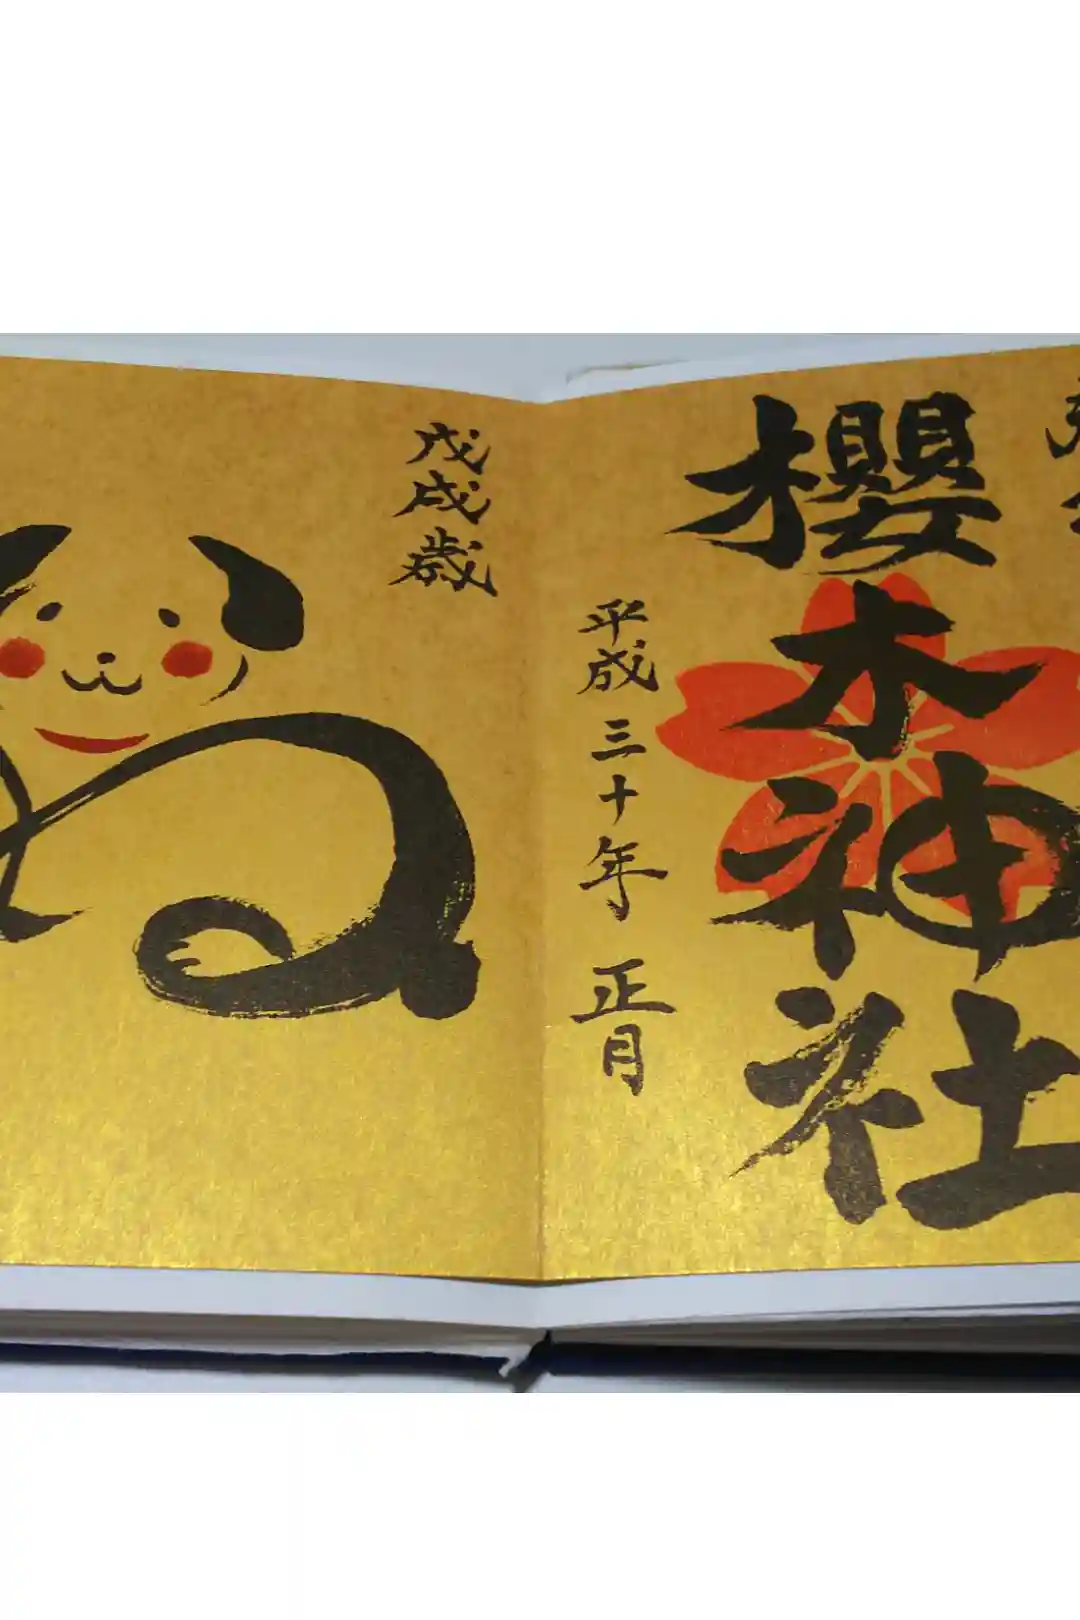 櫻木神社
平成三十年 正月
戊戌歳